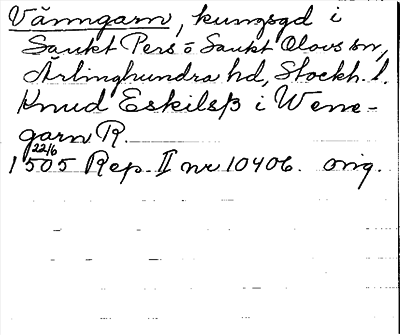 Vänngarn, kungsgd i
Sankt Pers o Sankt Olovs sn,
Ärlinghundra hd, Stockh. l.
Knud Eskilsß i Wene-
garn R.
22/6
1505 Rep. II nr 10406. orig.